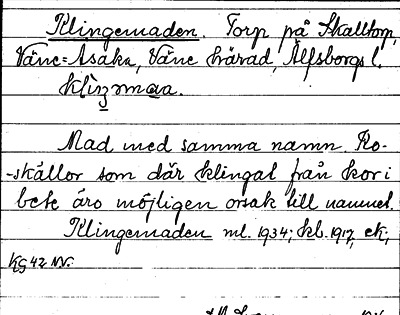 Klingemaden. Torp på Skalltorp,
Väne-Åsaka, Väne härad, Älfsborgs l.
klìŋmaa.
Mad med samma namn. Ko-
-skällor som där klingat från kor i
bete äro möjligen orsak till namnet.
Klingemaden ml. 1934; hb. 1917, ek;
KG 42 NV.